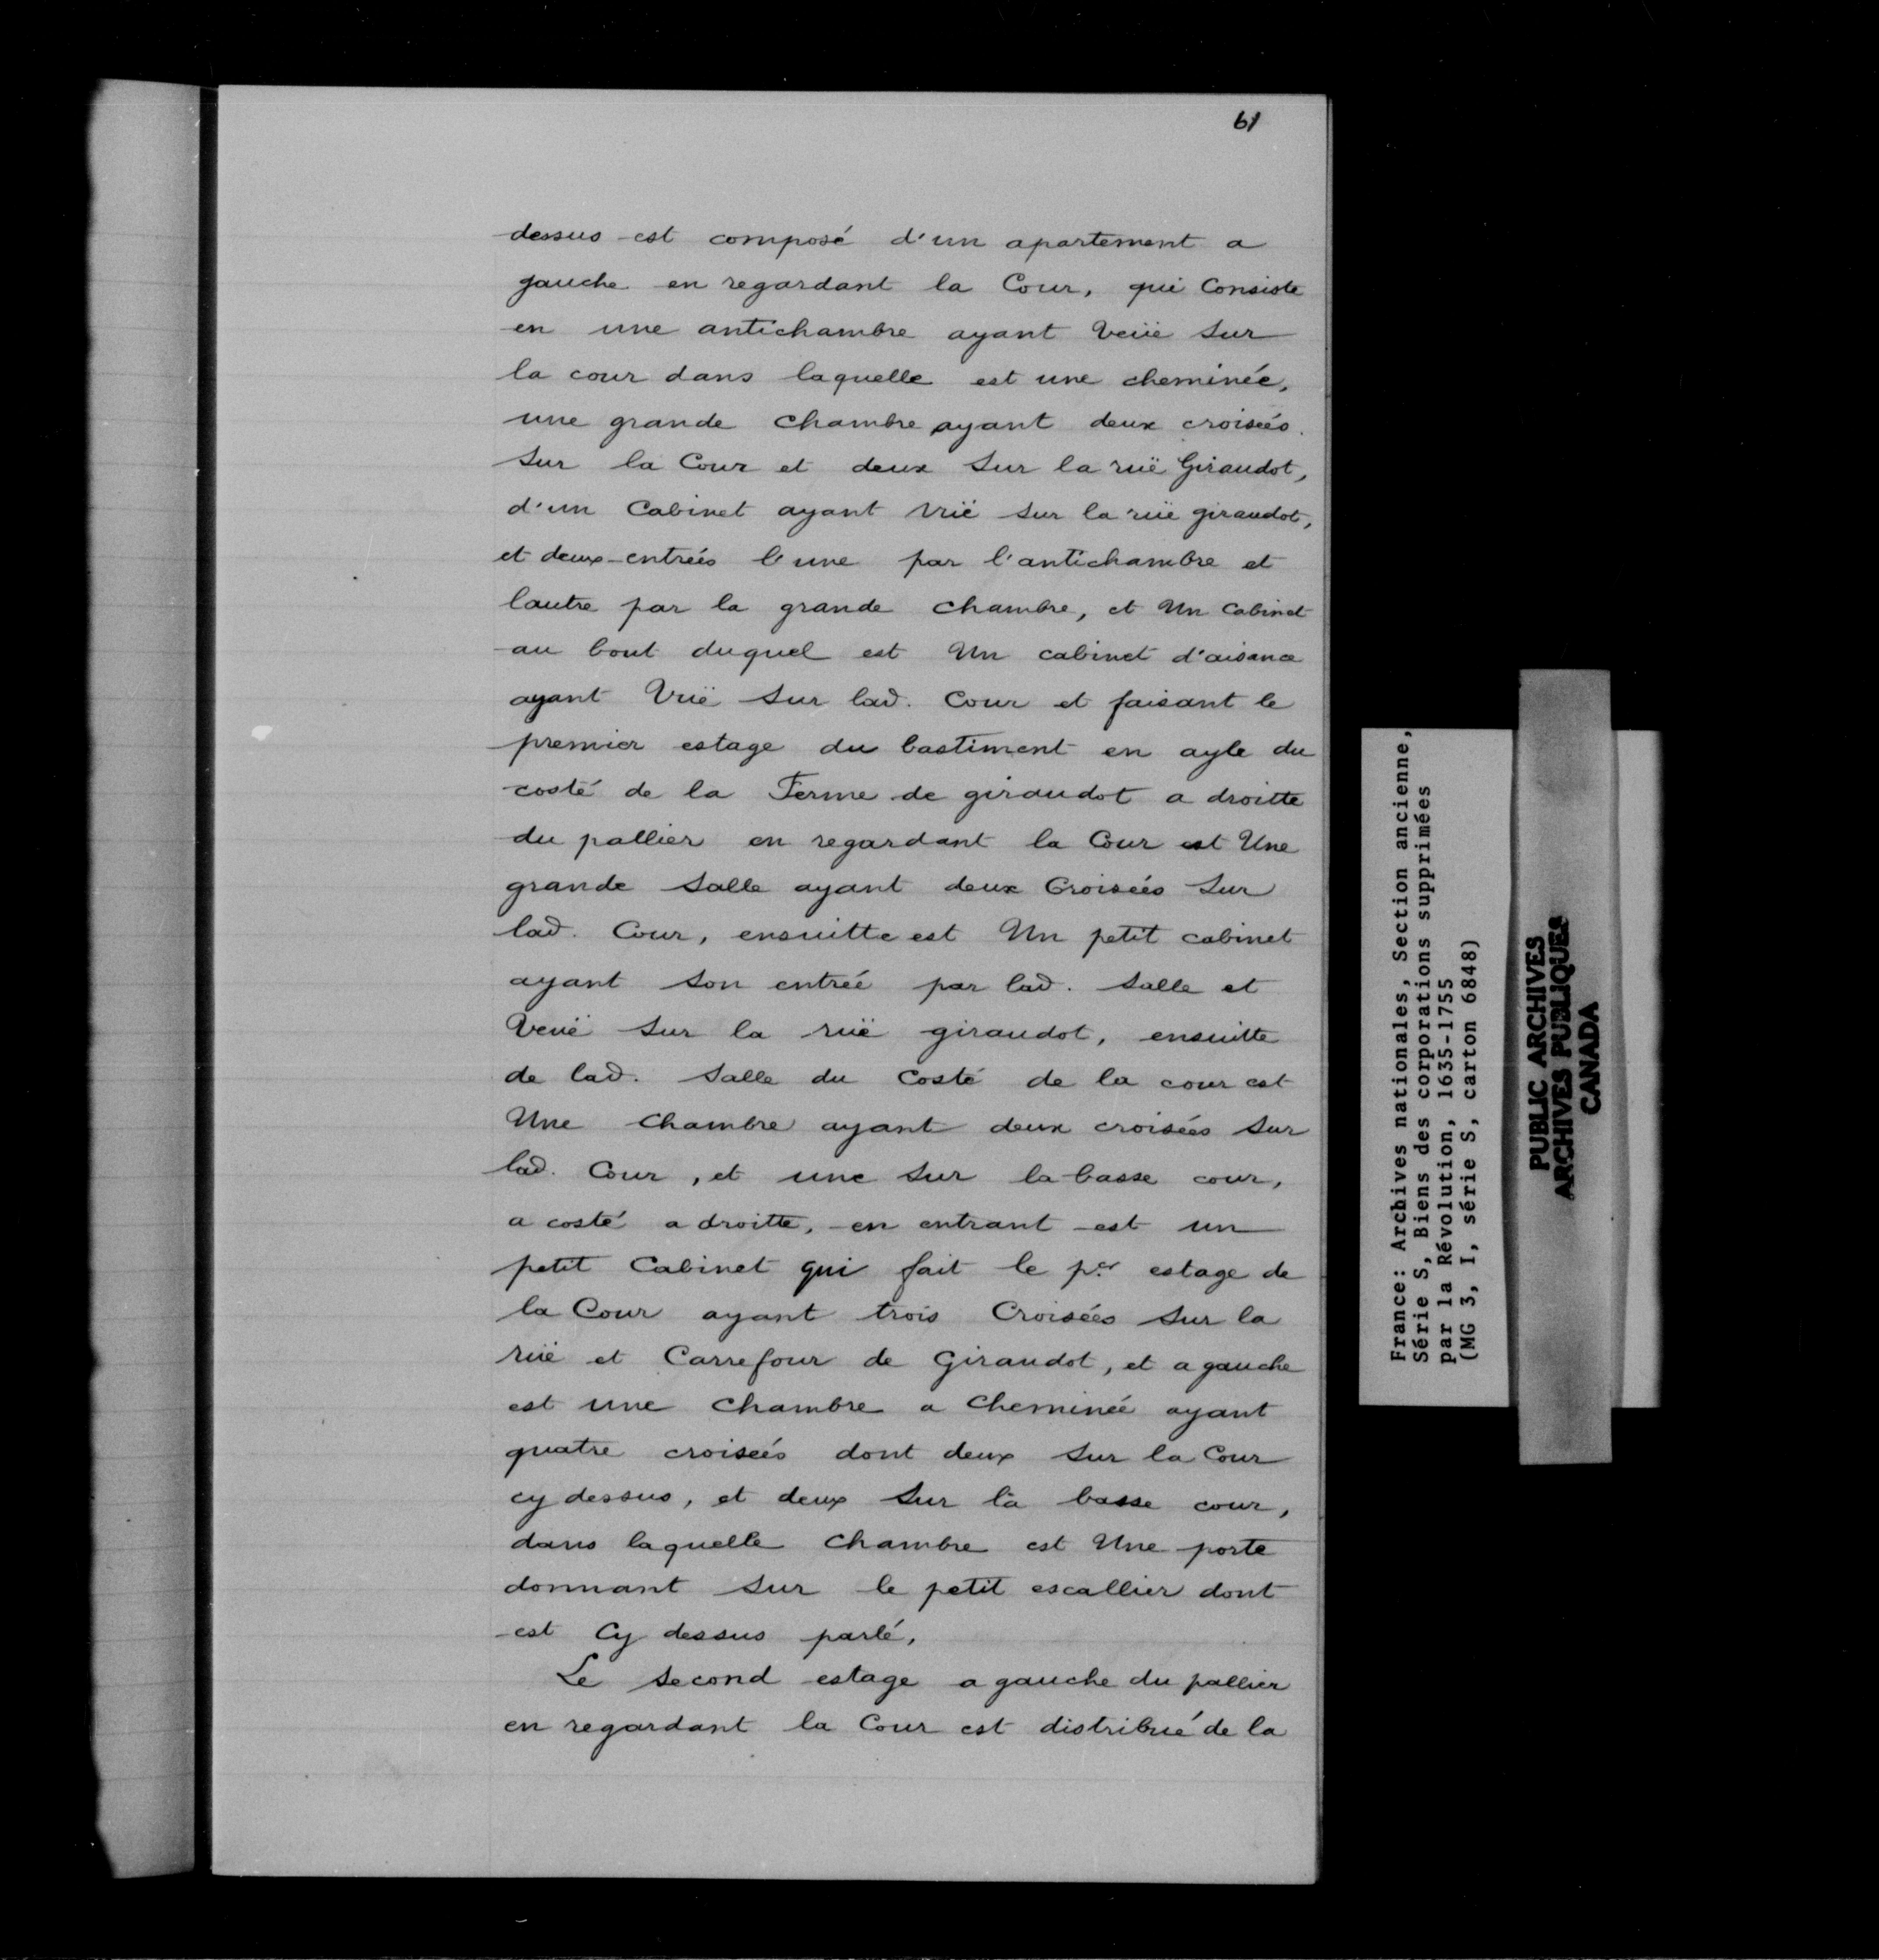 61
dessus est composé d'un apartement a
gauche en regardant la Cour, qui Consiste
en une antichambre ayant veüe sur
la cour dans laquelle est une cheminée,
une grande chambre ayant deux croisées.
sur la Cour et deux sur la rüe Giraudot,
d'un Cabinet ayant vüe sur la rüe giraudot,
et deux entrées l'une par l'antichambre et
lautre par la grande chambre, et Un Cabinet
au bout duquel est Un cabinet d'aisance
ayant Vüe sur lad. Cour et faisant le
premier estage du bastiment en ayle du
costé de la Ferme de giraudot a droitte
du pallier en regardant la Cour est Une
grande salle ayant deux Croisées sur
lad. Cour, ensuitte est Un petit cabinet
ayant son entrée par lad. salle et
Veuë sur la rüe giraudot, ensuitte
de lad. salle du Costé de la cour est
Une chambre ayant deux croisées sur
lad. Cour, et une sur la basse cour,
a costé a droitte, en entrant est un
petit Cabinet qui fait le p.er estage de
la Cour ayant trois Croisées sur la
rüe et Carrefour de Giraudot, et a gauche
est une chambre a Cheminée ayant
quatre croisées dont deux sur la Cour
cy dessus, et deux sur la basse cour,
dans laquelle chambre est Une porte
donnant sur le petit escallier dont
est Cy dessus parlé,
Le second estage a gauche du pallier
en regardant la Cour est distribué de la
France: Archives nationales, Section ancienne,
Série S, Biens des corporations supprimées
par la Révolution, 1635-1755
(MG 3, I, série S, carton 6848)
PUBLIC ARCHIVES
ARCHIVES PUBLIQUES
CANADA